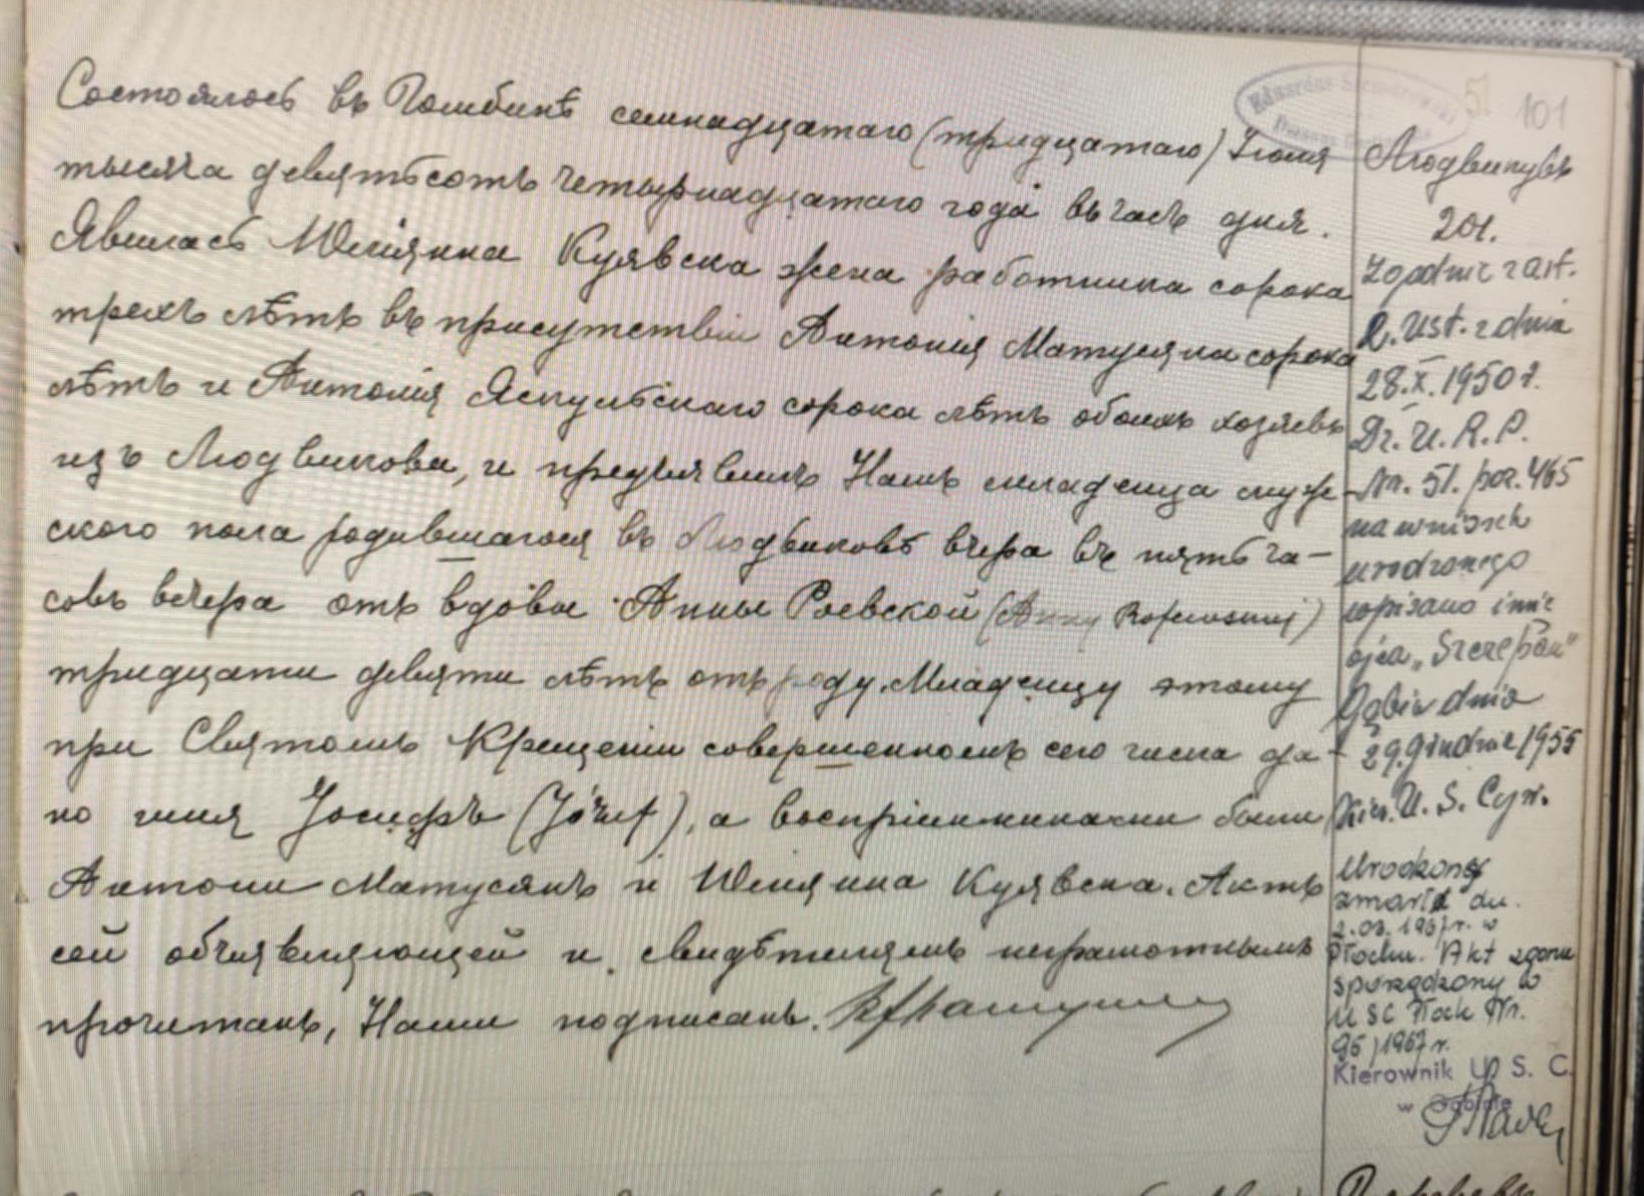 Состоялось въ Гомбинѣ семнадцатаго (тридцатаго) Іюля
тысяча девятьсотъ четырнадцатаго года въ часъ дня.
Явилась Куявска жена работника сорока
трехъ лѣтъ въ присутствіи Антонія Матусяка сорока
лѣтъ и Антонія Яскульскаго сорока лѣтъ обоихъ хозяевъ
изъ Людвикова, и предъявила Намъ младенца муже-
ского пола родившагося въ Людвиковѣ вчера въ пять ча-
совъ вечера отъ вдовы Анны Раевской (Anny
тридцати девяти лѣтъ отъ роду. Младенцу этому
при Святомъ Крещеніи совершенномъ сего числа да-
но имя Іосифъ (Józef), а воспріемниками были
Антони Матусякъ и Куявска. Актъ
сей объявляющей и свидѣтелямъ неграмотнымъ
прочитанъ, Нами подписанъ.
51 101
Людвикувъ
201.
Zgodnie z art.
2. Ust. z dnia
28.X.1950 r.
Dz. U. R. P.
Nr. 51. poz. 465
na wniosek
urodzonego
wpisano imię
ojca „Szczepan"
Gąbin dnia
29. grudnia 1955
Kier. U. S. Cyw.
Urodzony
zmarł dn.
2.03.1967 r. w
Płocku. Akt zgonu
sporządzony w
USC Płock Nr.
96/1967 r.
Kierownik U. S. C.
w Gąbinie